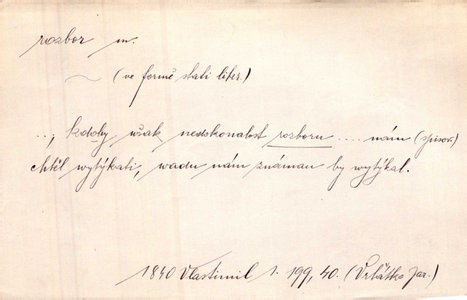 rozbor m.
~ (ve formě stati liter.)
..., kdoby však nedokonalost rozboru .... nám (spisov.)
chtěl wytýkati, wadu nám známau by wytýkal.
1840 Vlastimil 1. 199, 40. (Vrťátko Jar.)